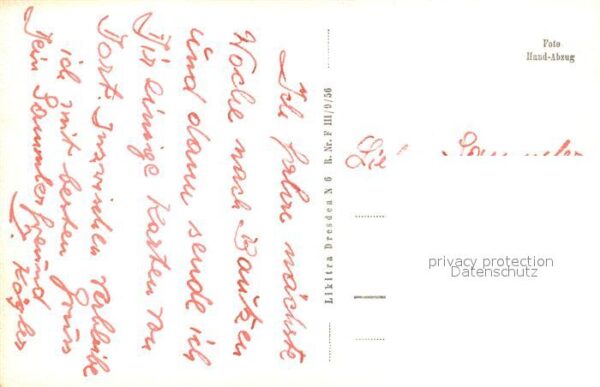 Ich fahre nächste
Woche nach Bautzen
und dann sende ich
Dir einige Karten von
Dort. Inzwischen verbleibe
ich mit besten Gruss
Dein Sammlerfreund
Likitra Dresden N 6 R. Nr. F III/9/56
Foto
Hand-Abzug
privacy protection
Datenschutz